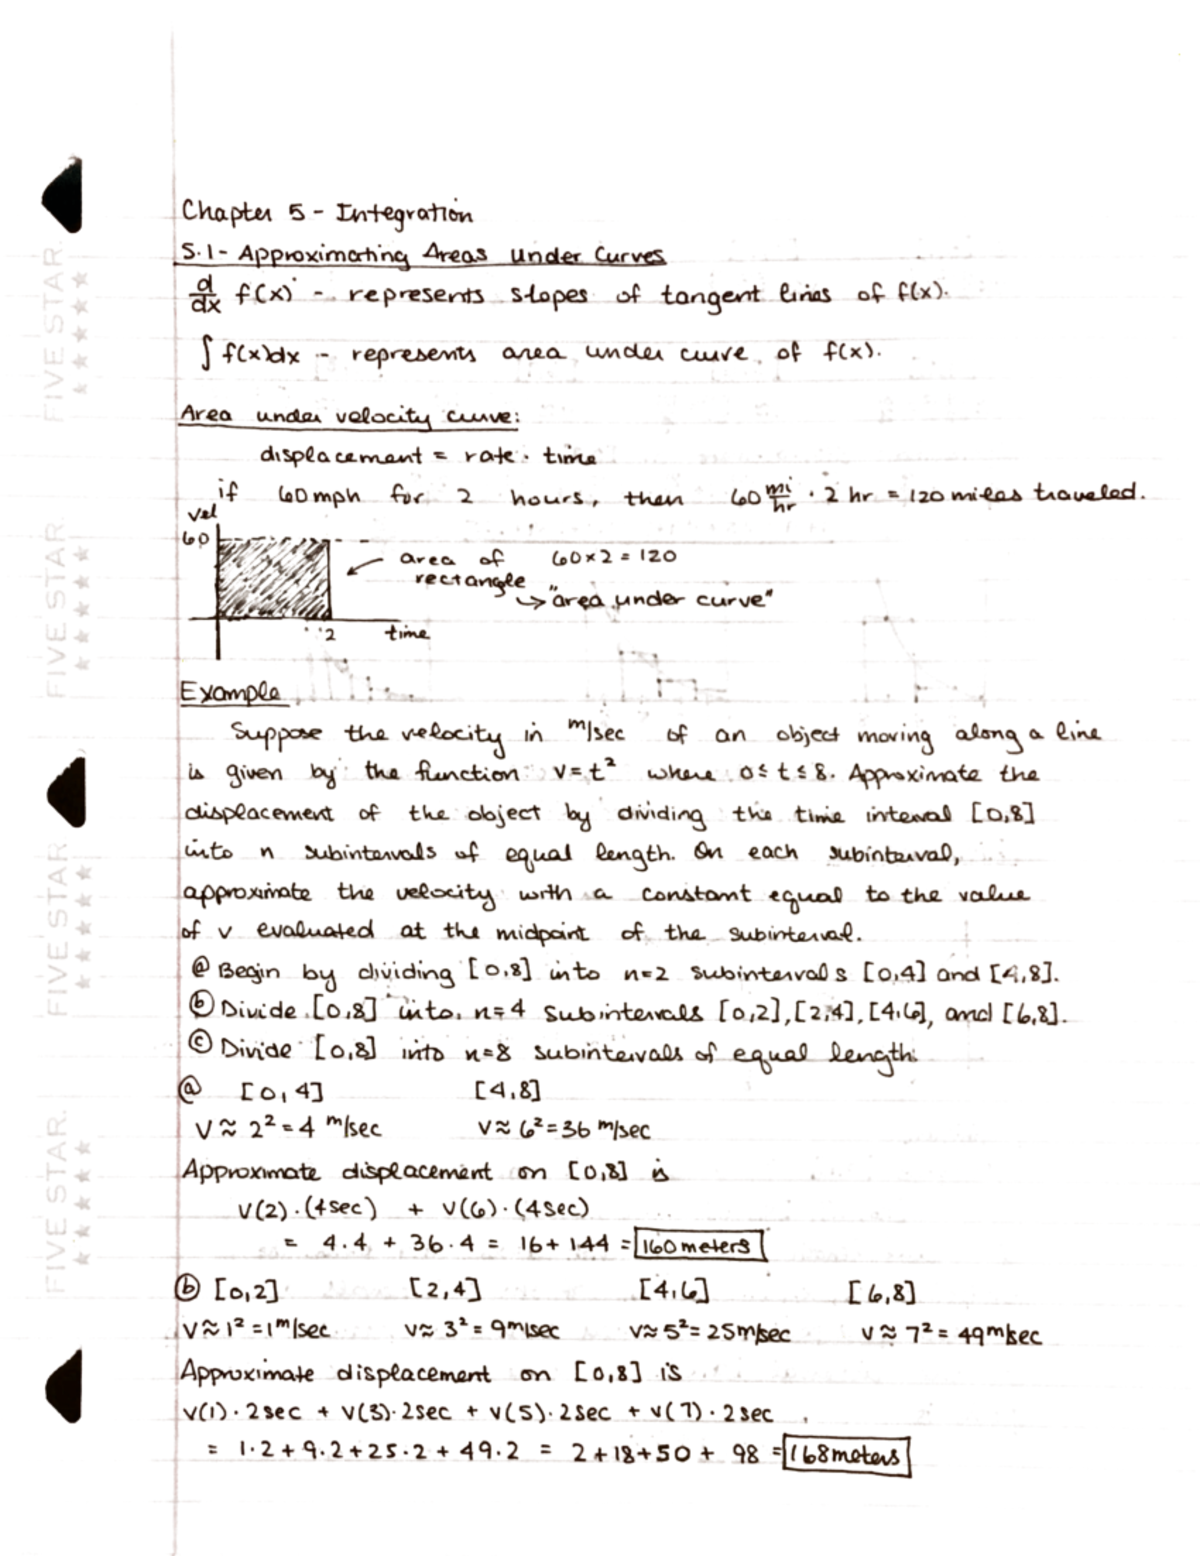 Chapter 5 - Integration
5.1 - Approximating Areas Under Curves
d/dx f(x) - represents slopes of tangent lines of f(x).
∫ f(x)dx - represents area under curve of f(x).
Area under velocity curve:
displacement = rate · time
if 60 mph for 2 hours, then 60 mi/hr · 2 hr = 120 miles traveled.
vel
60
area of rectangle 60×2 = 120
↳ "area under curve"
2 time
Example
Suppose the velocity in m/sec of an object moving along a line
is given by the function v = t² where 0 ≤ t ≤ 8. Approximate the
displacement of the object by dividing the time interval [0,8]
into n subintervals of equal length. On each subinterval,
approximate the velocity with a constant equal to the value
of v evaluated at the midpoint of the subinterval.
ⓐ Begin by dividing [0,8] into n=2 subintervals [0,4] and [4,8].
ⓑ Divide [0,8] into n=4 subintervals [0,2],[2,4],[4,6], and [6,8].
ⓒ Divide [0,8] into n=8 subintervals of equal length.
ⓐ [0,4] [4,8]
V ≈ 2² = 4 m/sec V ≈ 6² = 36 m/sec
Approximate displacement on [0,8] is
V(2)·(4sec) + V(6)·(4sec)
= 4·4 + 36·4 = 16 + 144 = 160 meters
ⓑ [0,2] [2,4] [4,6] [6,8]
V ≈ 1² = 1 m/sec V ≈ 3² = 9 m/sec V ≈ 5² = 25 m/sec V ≈ 7² = 49 m/sec
Approximate displacement on [0,8] is
V(1)·2sec + V(3)·2sec + V(5)·2sec + V(7)·2sec
= 1·2 + 9·2 + 25·2 + 49·2 = 2 + 18 + 50 + 98 = 168 meters
FIVE STAR.
FIVE STAR
FIVE STAR
FIVE STAR.